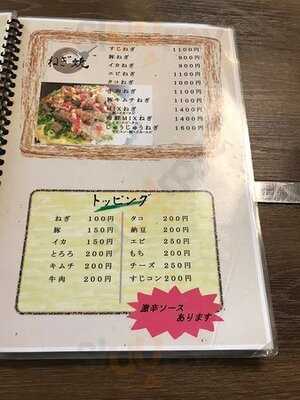 ねぎ焼
すじねぎ 1100円
豚ねぎ 900円
イカねぎ 900円
エビねぎ 1100円
タコねぎ 1000円
牛肉ねぎ 1100円
豚キムチねぎ 1100円
MIXねぎ 1400円
海鮮MIXねぎ 1400円
じゅうじゅうねぎ 1600円
トッピング
ねぎ 100円
豚 150円
イカ 150円
とろろ 200円
キムチ 200円
牛肉 200円
タコ 200円
納豆 200円
エビ 250円
もち 200円
チーズ 250円
すじコン 200円
激辛ソース
あります